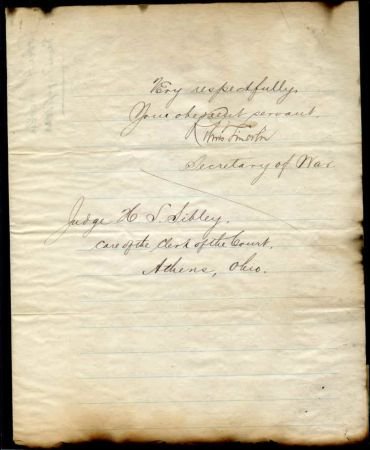 Very respectfully,
Your obedient servant.
Secretary of War
Judge H. S. Sibley.
care of the Clerk of the Court.
Athens, Ohio.